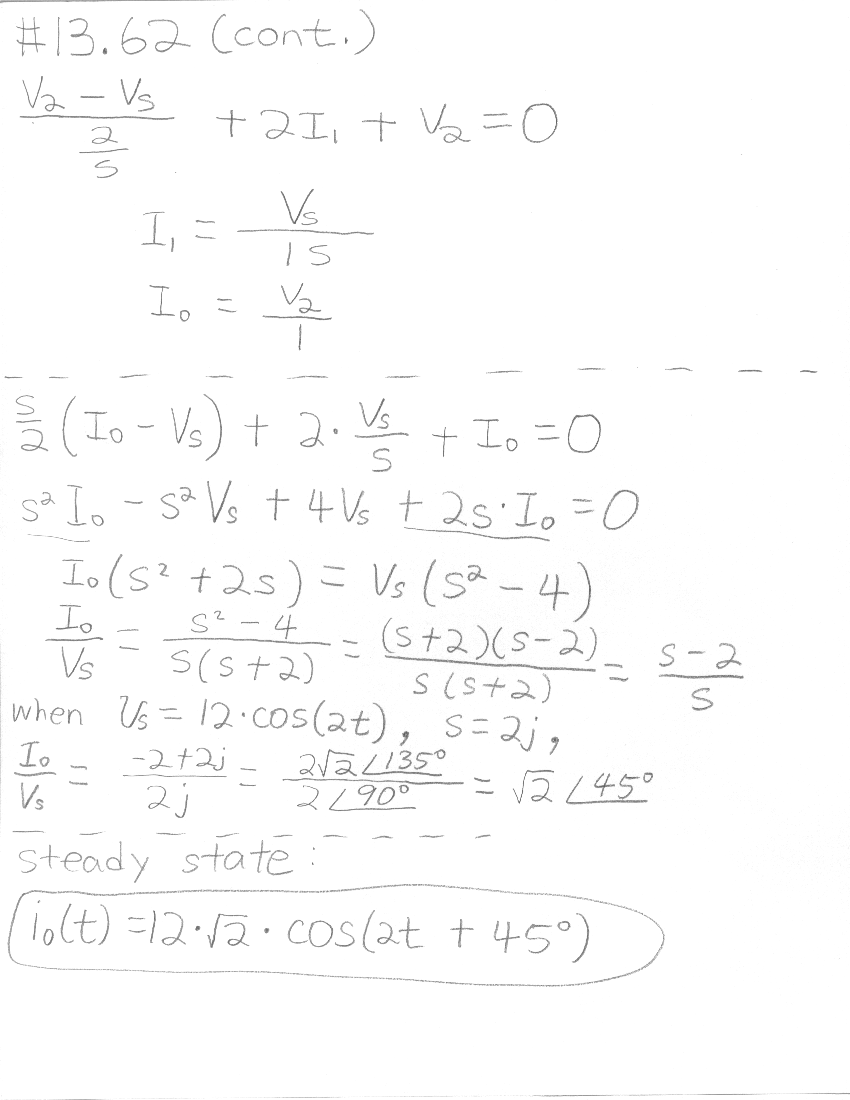 #13.62 (cont.)
(V₂ - Vs)/(2/s) + 2I₁ + V₂ = 0
I₁ = Vs/1s
I₀ = V₂/1
s/2 (I₀ - Vs) + 2·Vs/s + I₀ = 0
s²I₀ - s²Vs + 4Vs + 2s·I₀ = 0
I₀(s² + 2s) = Vs(s² - 4)
I₀/Vs = (s² - 4)/(s(s+2)) = ((s+2)(s-2))/(s(s+2)) = (s-2)/s
when Vs = 12·cos(2t), s = 2j,
I₀/Vs = (-2+2j)/2j = (2√2∠135°)/(2∠90°) = √2∠45°
steady state:
i₀(t) = 12·√2·cos(2t + 45°)